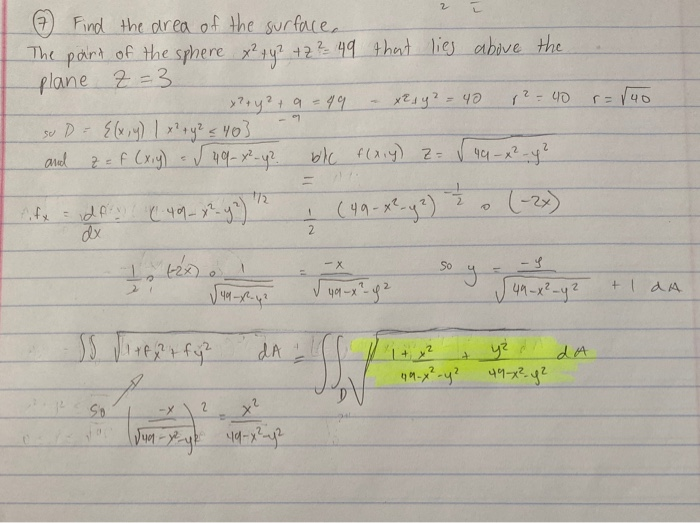 ⑦ Find the area of the surface.
The part of the sphere x²+y²+z²=49 that lies above the
plane z=3
x²+y²+9=49 - x²+y²=40 r²=40 r=√40
-9
so D = {(x,y) | x²+y² ≤ 40}
and z=f(x,y) = √49-x²-y² b/c f(x,y) z= √49-x²-y²
=
fx = df/dx = (49-x²-y²)^1/2 1/2 (49-x²-y²)^-1/2 ∘ (-2x)
1/2 ∘ (-2x) ∘ 1/√49-x²-y² = -x/√49-x²-y² so y = -y/√49-x²-y² + 1 dA
∫∫ √1+fx²+fy² dA = ∫∫_D √1 + x²/49-x²-y² + y²/49-x²-y² dA
so (-x/√49-x²-y²)² = x²/49-x²-y²